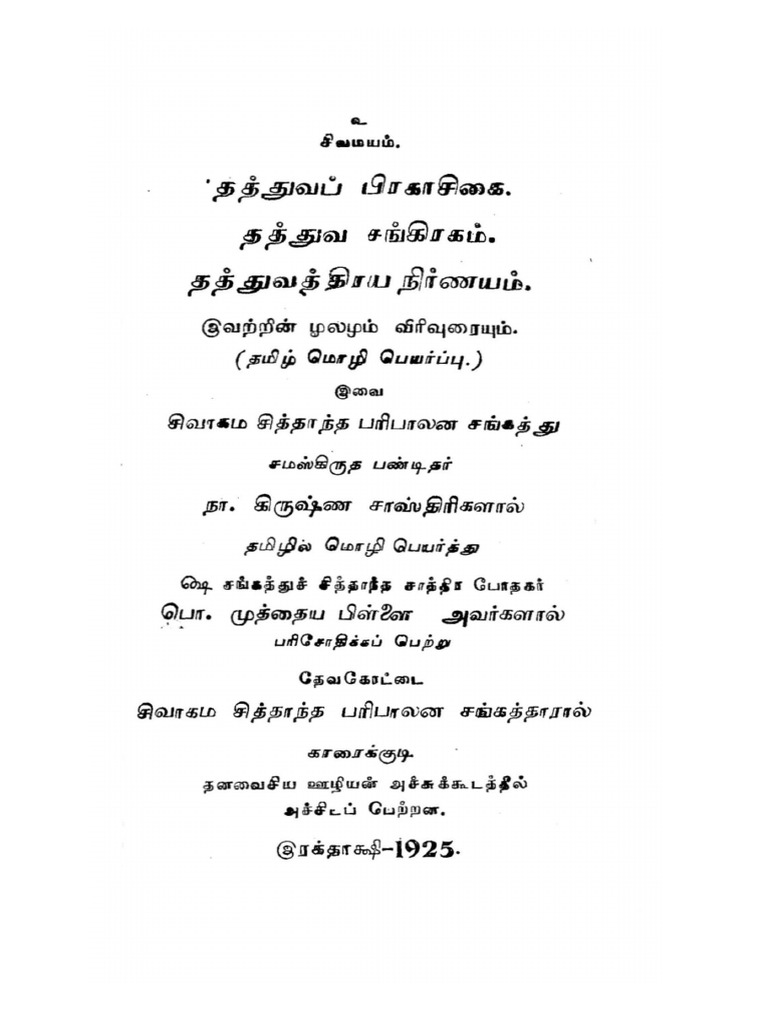 உ
சிவமயம்.
தத்துவப் பிரகாசிகை.
தத்துவ சங்கிரகம்.
தத்துவத்திரய நிர்ணயம்.
இவற்றின் மூலமும் விரிவுரையும்.
(தமிழ் மொழி பெயர்ப்பு.)
இவை
சிவாகம சித்தாந்த பரிபாலன சங்கத்து
சமஸ்கிருத பண்டிதர்
நா. கிருஷ்ண சாஸ்திரிகளால்
தமிழில் மொழி பெயர்த்து
௸ சங்கத்துச் சித்தாந்த சாத்திர போதகர்
பொ. முத்தைய பிள்ளை அவர்களால்
பரிசோதிக்கப் பெற்று
தேவகோட்டை
சிவாகம சித்தாந்த பரிபாலன சங்கத்தாரால்
காரைக்குடி
தனவைசிய ஊழியன் அச்சுக்கூடத்தில்
அச்சிடப் பெற்றன.
இரக்தாக்ஷி-1925.